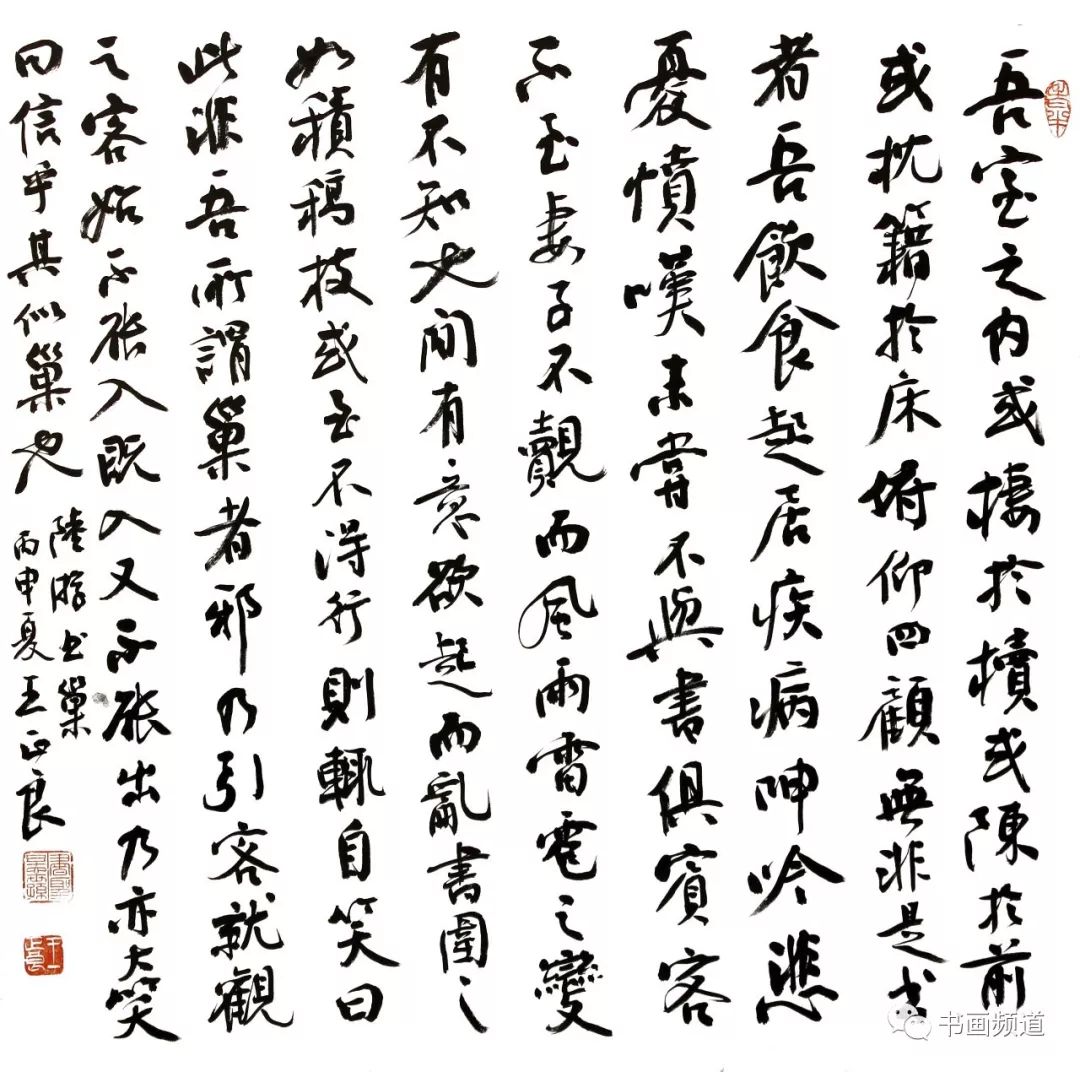 吾室之内或棲於櫝或陳於前
或枕籍於床俯仰四顧無非是书
者吾飲食起居疾病呻吟悲
憂憤嘆未嘗不與書俱賓客
不至妻子不覿而風雨雷雹之變
有不知也間有意欲起而亂書圍之
如積槁枝或至不得行則輒自笑曰
此非吾所謂巢者邪乃引客就觀
之客始不能入既入又不能出乃亦大笑
曰信乎其似巢也
陸游书巢
丙申夏王正良
书画频道